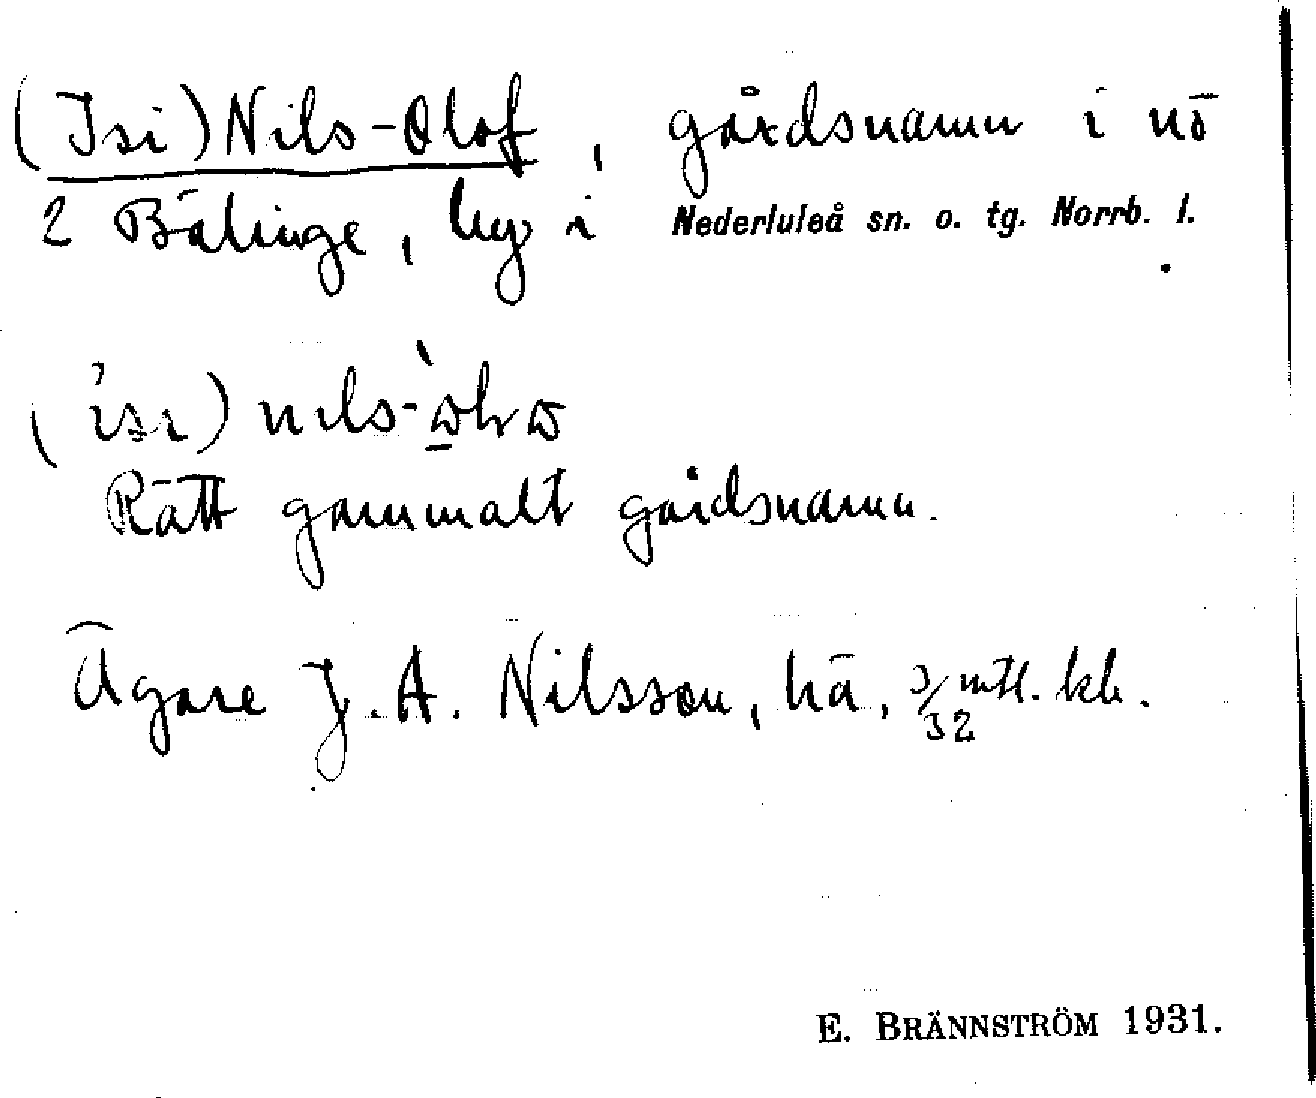 (Isi)Nils-Olof, gårdsnamn i nō
2 Bälinge, by i Nederluleå sn. o. tg. Norrb. l.
(isi) nils-
Rätt gammalt gårdsnamn.
Ägare J. A. Nilsson, hä, 3/32 mtl. kh.
E. BRÄNNSTRÖM 1931.